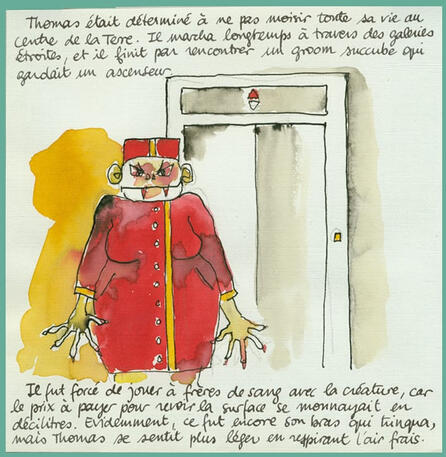 Thomas était déterminé à ne pas moisir toute sa vie au
centre de la Terre. Il marcha longtemps à travers des galeries
étroites, et il finit par rencontrer un groom succube qui
gardait un ascenseur.
Il fut forcé de jouer à frères de sang avec la créature, car
le prix à payer pour revoir la surface se monnayait en
décilitres. Evidemment, ce fut encore son bras qui tringua,
mais Thomas se sentit plus léger en respirant l'air frais.